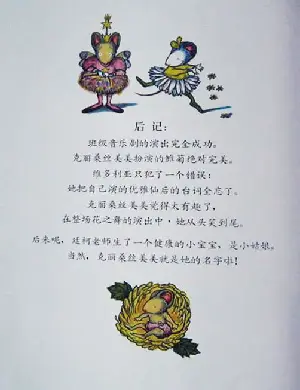 后记：
班级音乐剧的演出完全成功。
克丽桑丝美美扮演的雏菊绝对完美。
维多利亚只犯了一个错误：
她把自己演的优雅仙后的台词全忘了。
克丽桑丝美美觉得太有趣了，
在整场花之舞的演出中，她从头笑到尾。
后来呢，廷柯老师生了一个健康的小宝宝，是小姑娘。
当然，克丽桑丝美美就是她的名字啦！